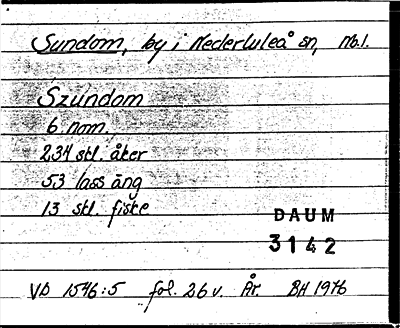 Sundom, by i Nederluleå sn, Nb.l.
Szundom
6 nom.
234 skl. åker
53 lass äng
13 skl. fiske
DAUM
3142
VD 1546:5 fol. 26 v. År. BH 1976